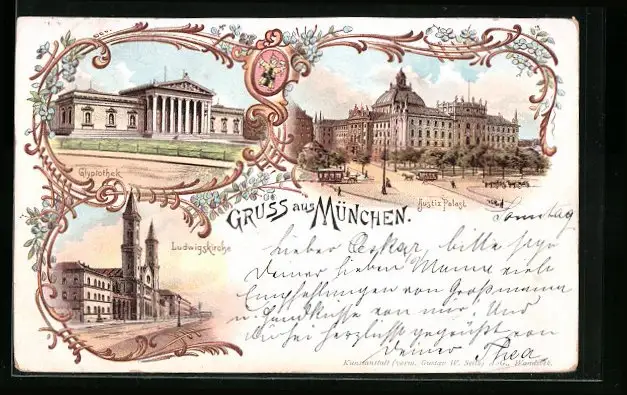 Glyptothek
Justiz Palast
GRUSS aus MÜNCHEN.
Sonntag
Ludwigskirche
Lieber Oskar, bitte sage
Deiner lieben Mama viele
Empfehlungen von Großmama
u. Handküsse von mir. Und
Du sei herzlichst gegrüßt von
Deiner Thea
Kunstanstalt (vorm. Gustav W. Seitz) A.G., Wandsbek.